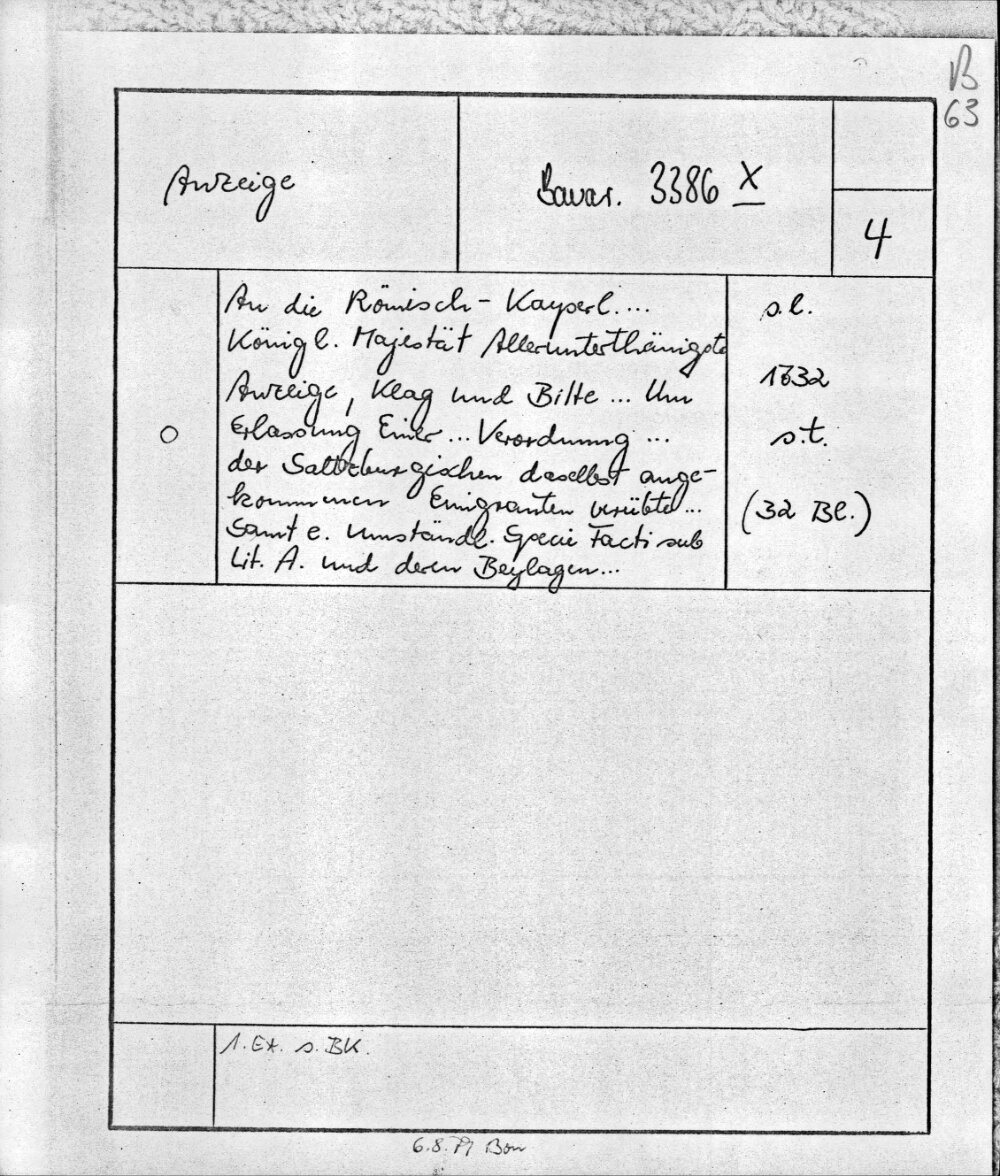 B
63
Anzeige
Bavar. 3386 X
4
An die Römisch-Kayserl. ...
Königl. Majestät Allerunterthänigste
Anzeige, Klag und Bitte ... Um
Erlassung Einer ... Verordnung ...
der Saltzburgischen daselbst ange-
kommenen Emigranten verübte ...
Samt e. umständl. Specie Facti sub
Lit. A. und deren Beylagen ...
s.l.
1732
s.t.
(32 Bl.)
1. Ex. s. BK.
6.8.